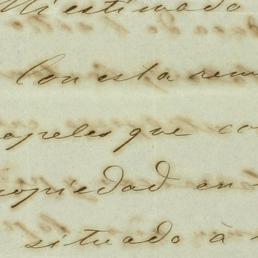 Mi estimado
Con esta rem
papeles que co
ropiedad en
situado à